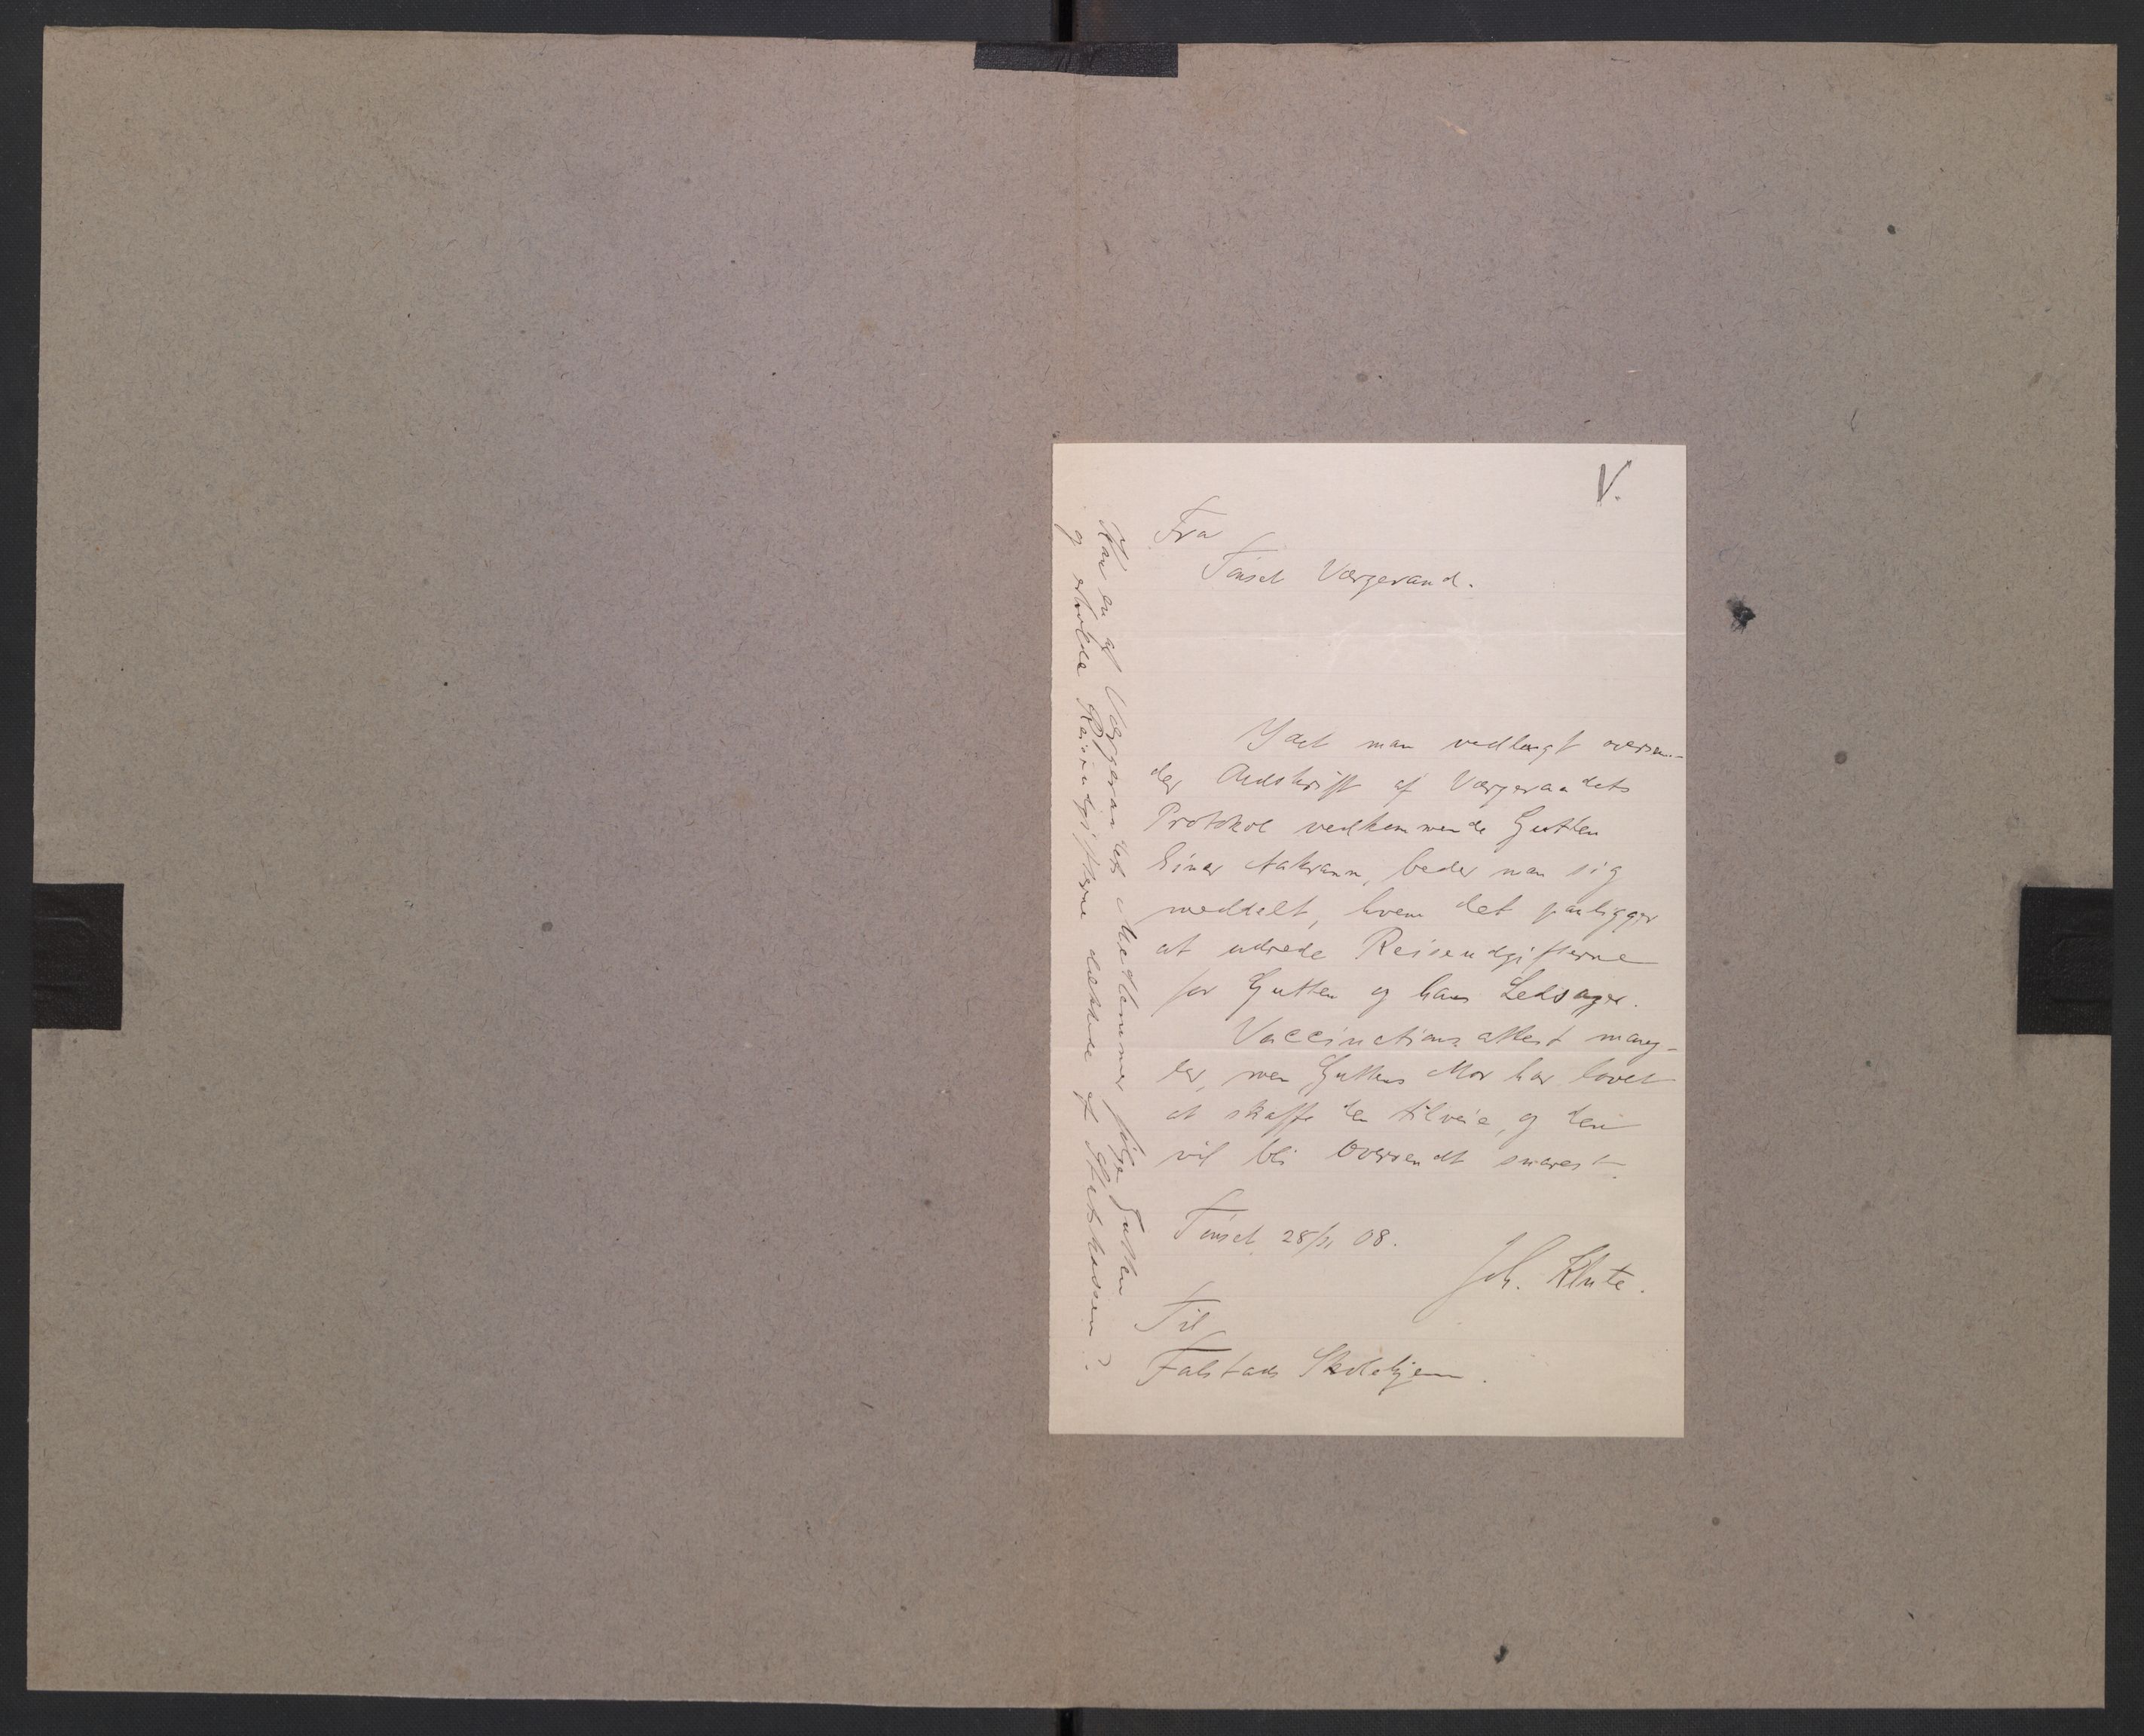 V.
Fra
Tönset Værgeraad.
Idet man vedlagt oversen-
der Audskrift af Værgeraadets
Protokol vedkommende Gutten
Einar Aakrann, beder man sig
meddelt, hvem det paaligger
at udrede Reiseudgifterne
for Gutten og hans Ledsager.
Vaccinations attest mang-
ler, men Guttens Mor har lovet
at skaffe den tilveie, og den
vil bli oversendt snarest.
Tönset 28/11 08.
Joh. Klute.
Til
Falstads Skolehjem.
Kan en af Værgeraadets Medlemmer følge Gutten
og erholde Reiseudgifterne dækkede af Statskassen?